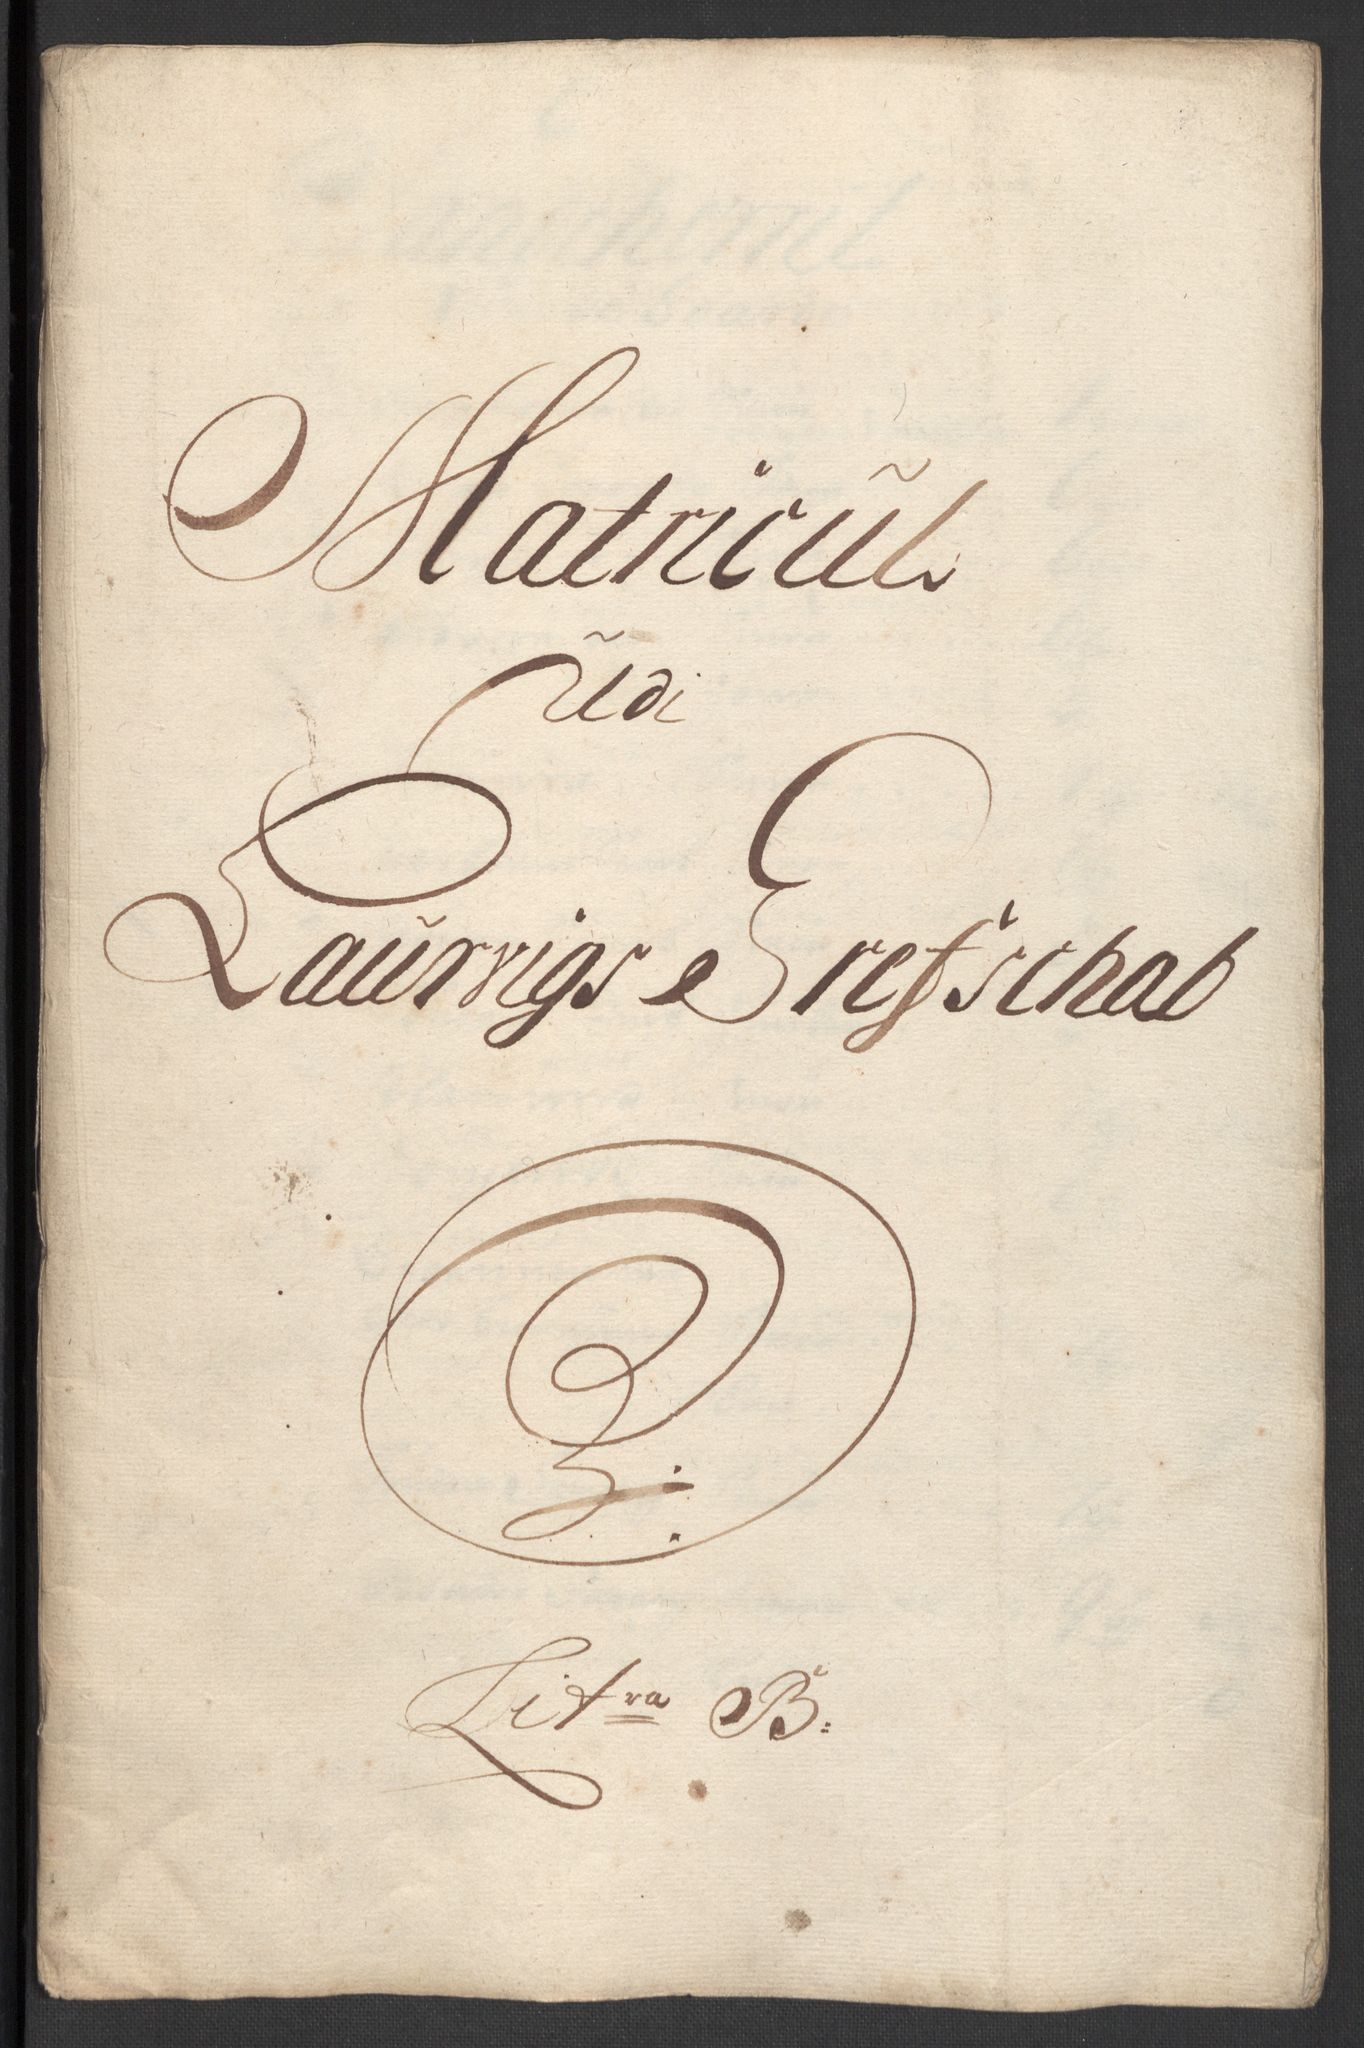 Matricul
Udi
Laurvigs Grefschab
Litra B: